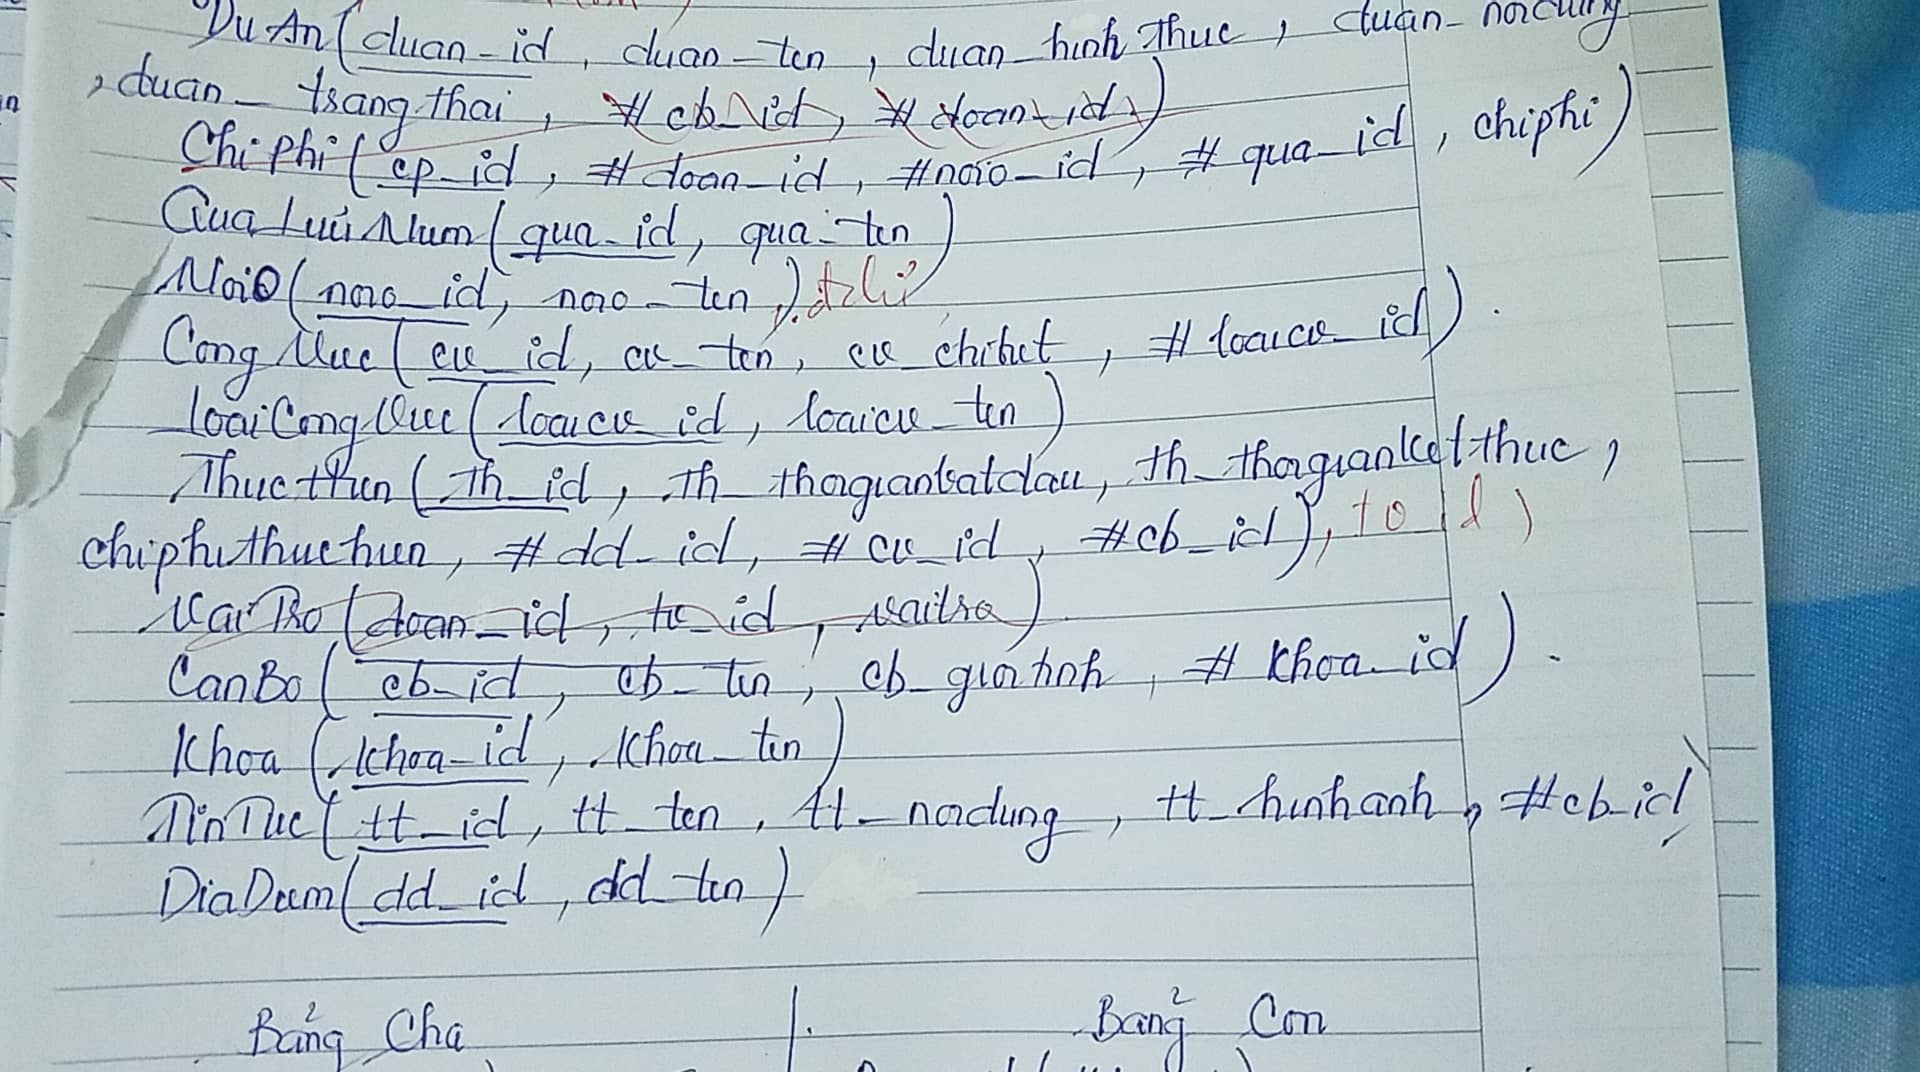 DuAn(duan-id, duan-ten, duan-hinhthuc, duan-noidung
, duan-trangthai, #cb-id, #doan-id)
ChiPhi(cp-id, #doan-id, #noio-id, #qua-id, chiphi)
QuaLuuNiem(qua-id, qua-ten)
NoiO(noio-id, noio-ten)
CongViec(cv-id, cv-ten, cv-chitiet, #loaicv-id).
LoaiCongViec(loaicv-id, loaicv-ten)
ThucHien(th-id, th-thoigianbatdau, th-thoigianketthuc,
chiphithuchien, #dd-id, #cv-id, #cb-id), to id)
VaiTro(doan-id, tv-id, vaitro)
CanBo(cb-id, cb-ten, cb-gioitinh, #khoa-id).
Khoa(khoa-id, khoa-ten)
TinTuc(tt-id, tt-ten, tt-noidung, tt-hinhanh, #cb-id)
DiaDiem(dd-id, dd-ten)
Bảng Cha Bảng Con